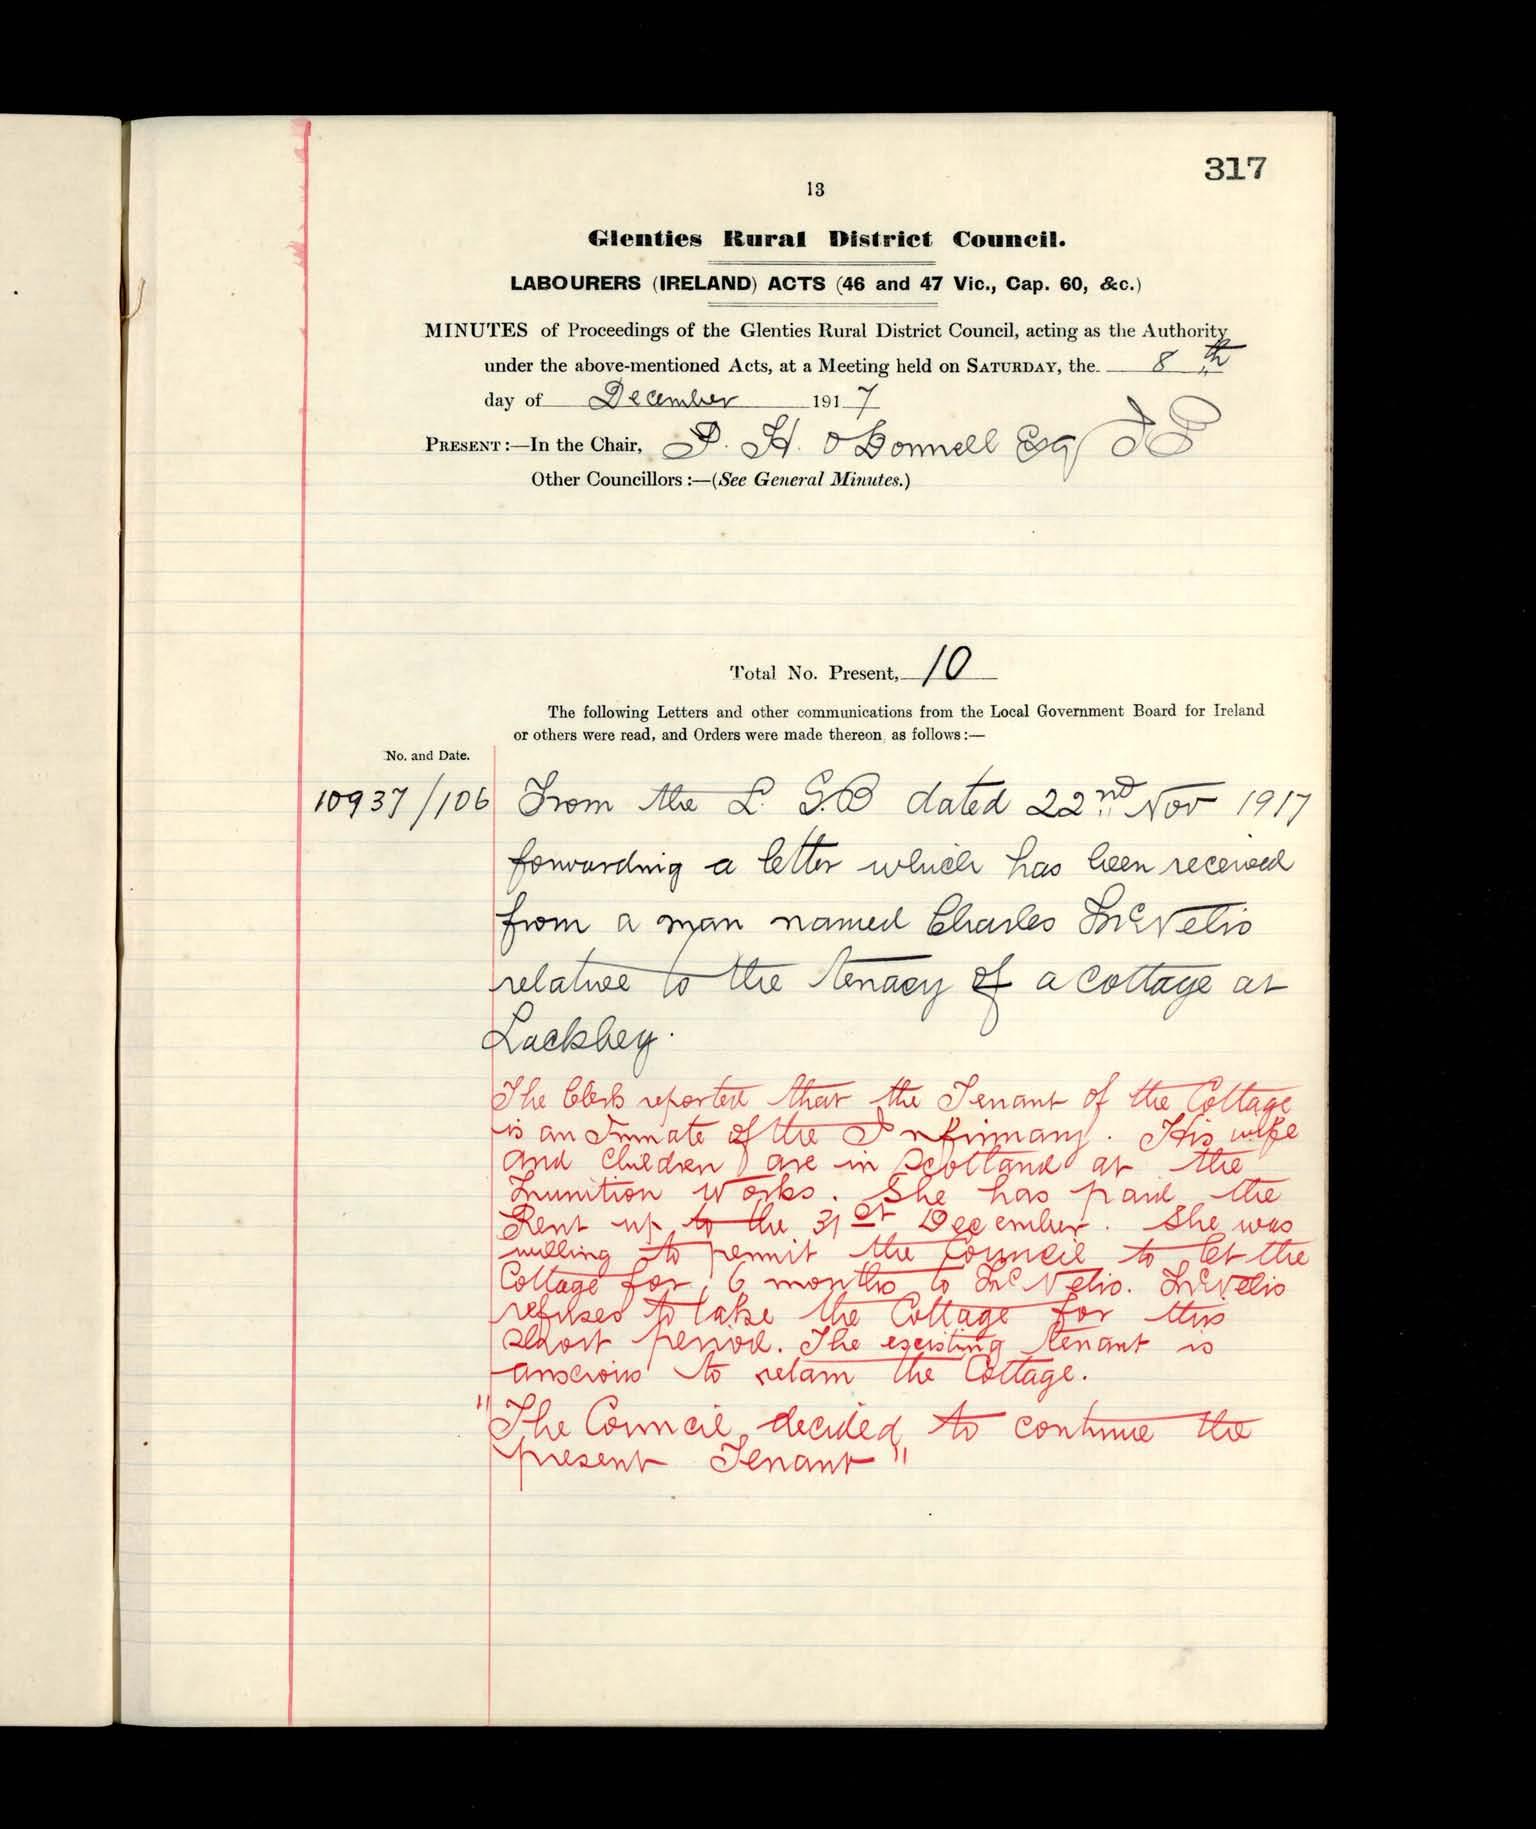 317
13
Glenties Rural District Council.
LABOURERS (IRELAND) ACTS (46 and 47 Vic., Cap. 60, &c.)
MINUTES of Proceedings of the Glenties Rural District Council, acting as the Authority
under the above-mentioned Acts, at a Meeting held on SATURDAY, the 8th
day of December 1917
PRESENT:—In the Chair, P. H. O'Donnell Esq
Other Councillors:—(See General Minutes.)
Total No. Present, 10
The following Letters and other communications from the Local Government Board for Ireland
or others were read, and Orders were made thereon as follows:—
No. and Date.
10937/106 From the L. G.B dated 22nd Nov 1917
forwarding a letter which has been received
from a man named Charles McNelis
relative to the tenacy of a cottage at
Lackbey.
The Clerk reported that the Tenant of the Cottage
is an Inmate of the Infirmary. His wife
and children are in Scotland at the
Munition Works. She has paid the
Rent up to the 31st December. She was
willing to permit the Council to let the
Cottage for 6 months to McNelis. McNelis
refuses to take the Cottage for this
short period. The existing tenant is
anxious to retain the Cottage.
"The Council decided to continue the
present Tenant"